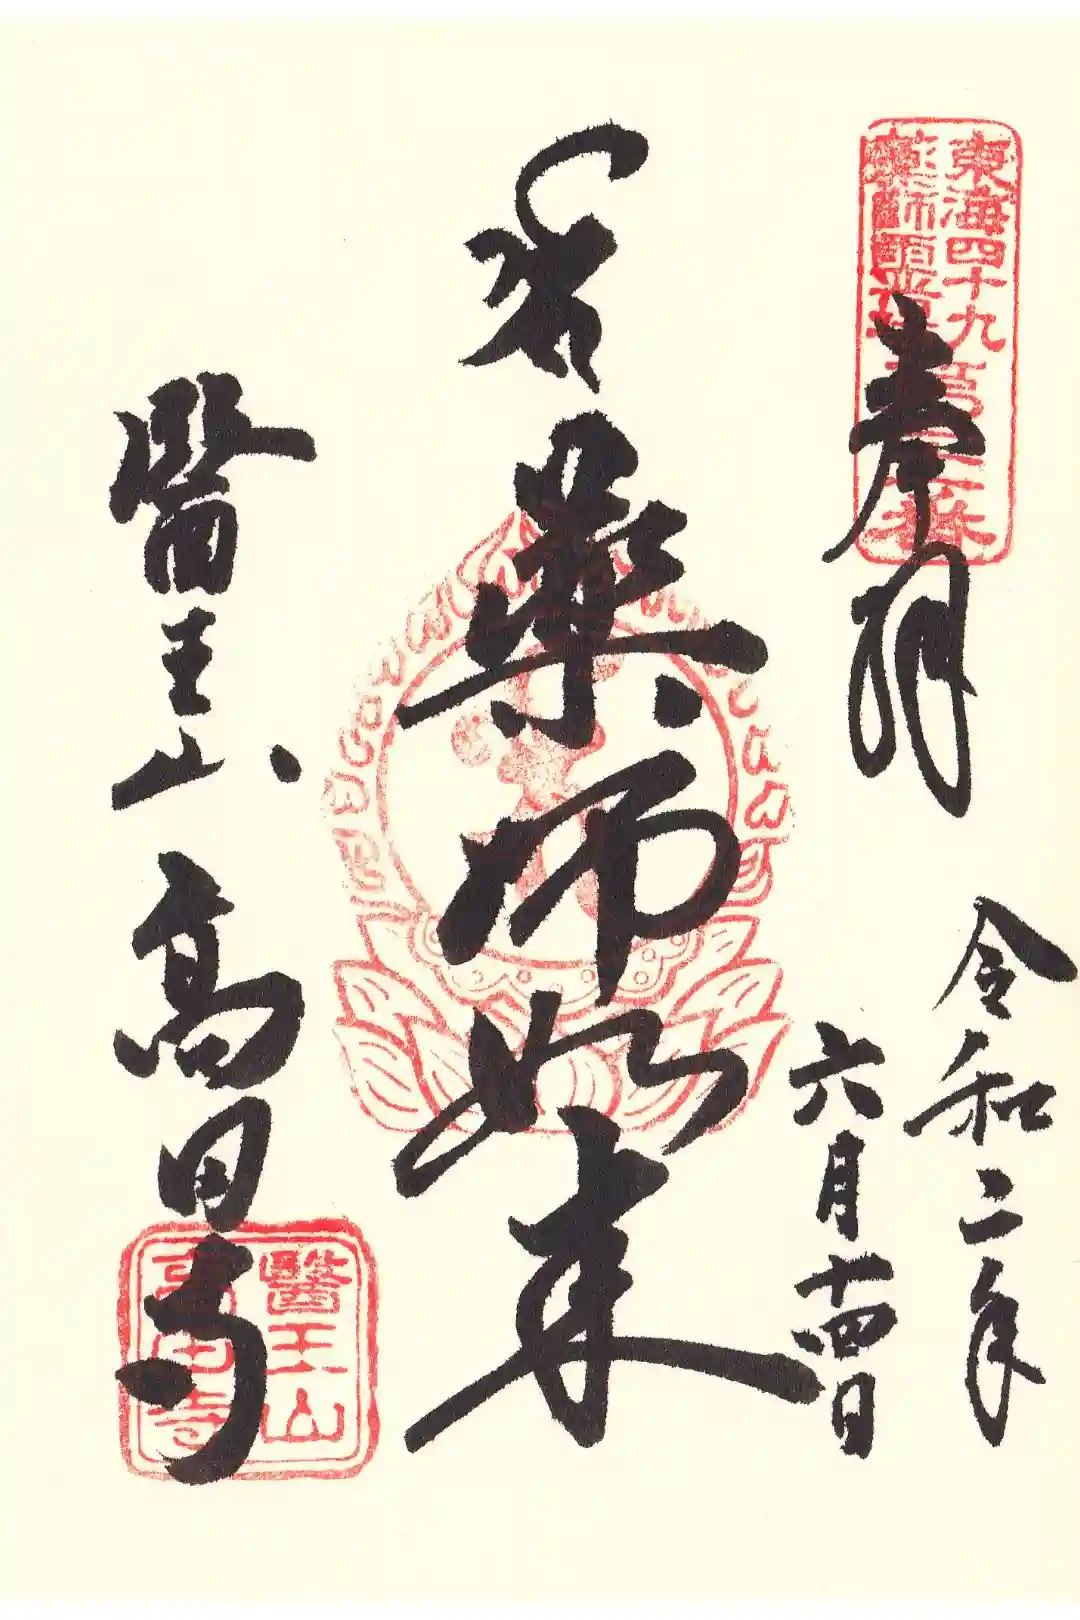 東海四十九
薬師霊場
奉拝
令和二年
六月十四日
薬師如来
醫王山
高田寺
醫王山
高田寺